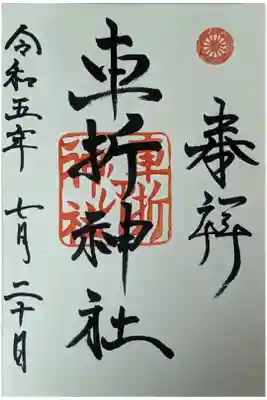 奉拝
車折神社
車折神社
令和五年 七月 二十日